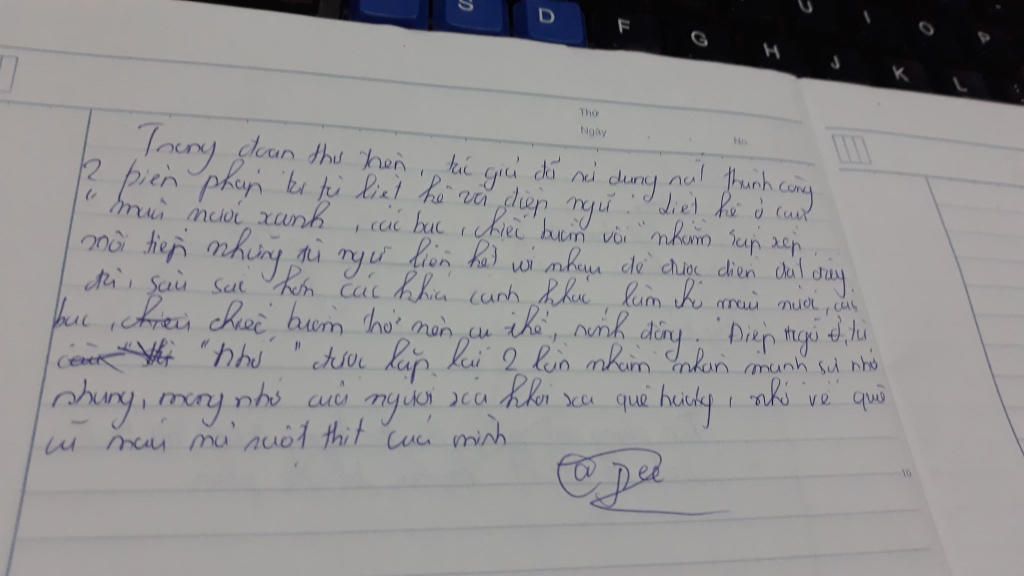 S D F G H J K L U I O P
Thứ
Ngày
No
Trong đoạn thơ trên, tác giả đã sử dụng rất thành công
2 biện pháp tu từ liệt kê và điệp ngữ. Liệt kê ở câu
"màu nước xanh, cá bạc, chiếc buồm vôi" nhằm sắp xếp,
nối tiếp những từ ngữ liên kết với nhau để được diễn đạt đầy
đủ, sâu sắc hơn các khía cạnh khác làm cho màu nước, cá
bạc, chiếc buồm thơ nên cụ thể, sinh động. Điệp ngữ ở từ
"nhớ" được lặp lại 2 lần nhằm nhấn mạnh sự nhớ
nhung, mong nhớ của người xa khơi xa quê hương, nhớ về quê
cũ máu mủ ruột thịt của mình
@ Dee
10